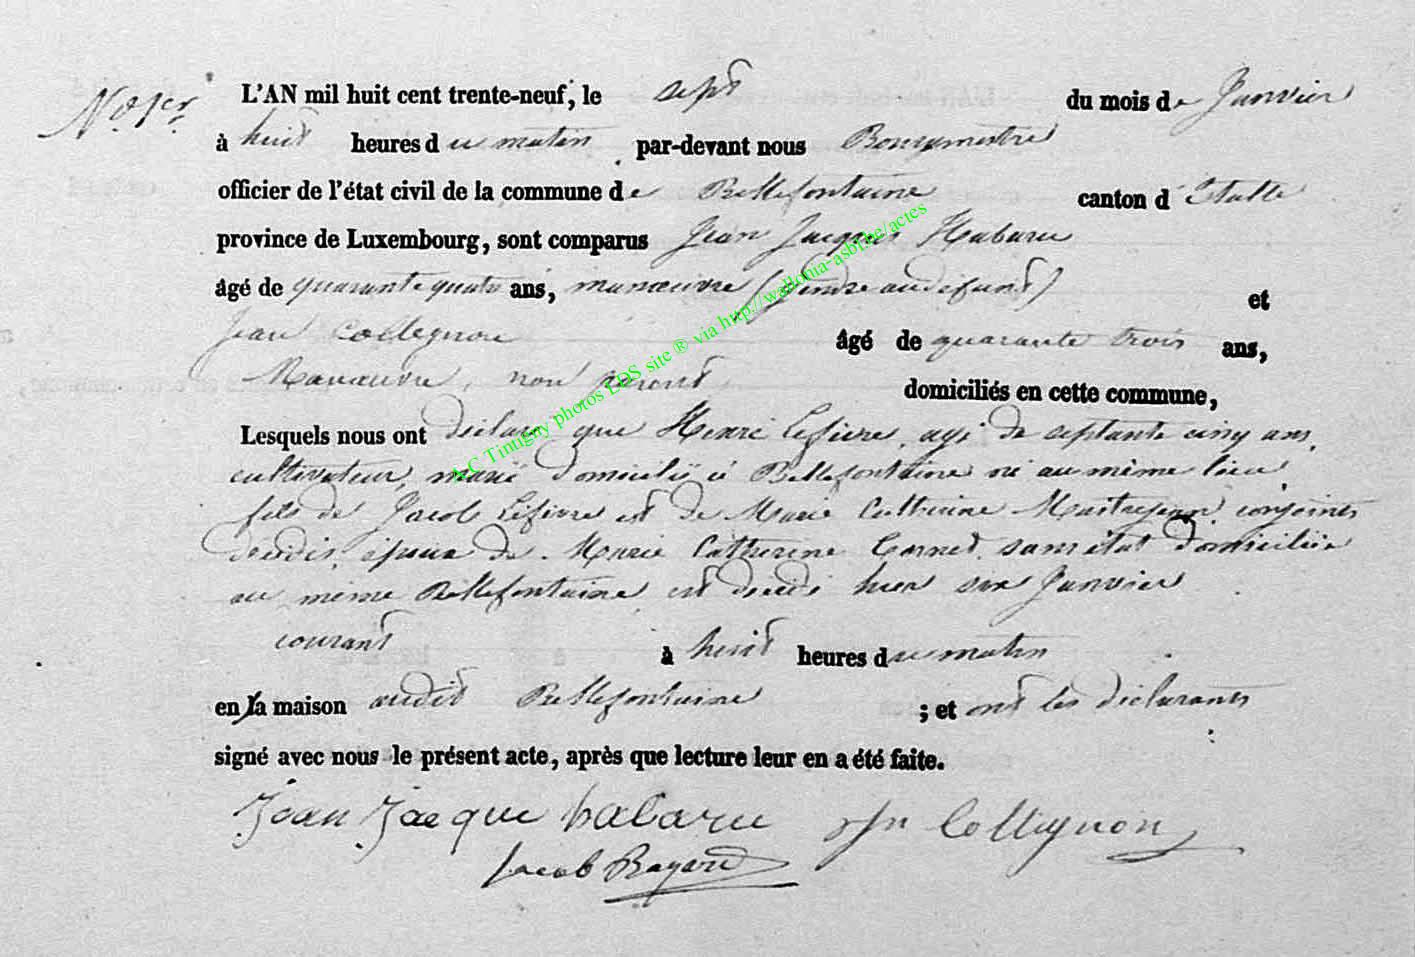 No 1er
L'AN mil huit cent trente-neuf, le sept du mois de Janvier
à huit heures du matin par-devant nous Bourgmestre
officier de l'état civil de la commune de Bellefontaine canton d'Etalle
province de Luxembourg, sont comparus Jean Jacques Habaru
âgé de quarante quatre ans, manœuvre (gendre au défunt) et
Jean Collegnon âgé de quarante trois ans,
Manœuvre, non parent, domiciliés en cette commune,
Lesquels nous ont déclaré que Henri Lefevre, agé de septante cinq ans,
cultivateur, marié domicilié à Bellefontaine né au même lieu,
fils de Jacob Lefevre et de Marie Catherine Maitrejean conjoints
décédés, époux de Marie Catherine Cornet, sans état domiciliée
au même Bellefontaine est décédé hier six Janvier
courant à huit heures du matin
en sa maison audit Bellefontaine ; et ont les déclarants
signé avec nous le présent acte, après que lecture leur en a été faite.
Jean Jacque habaru Collignon
Jacob Rayard
A.C Tintigny photos LDS site ® via http://wallonia-asbl.be/actes